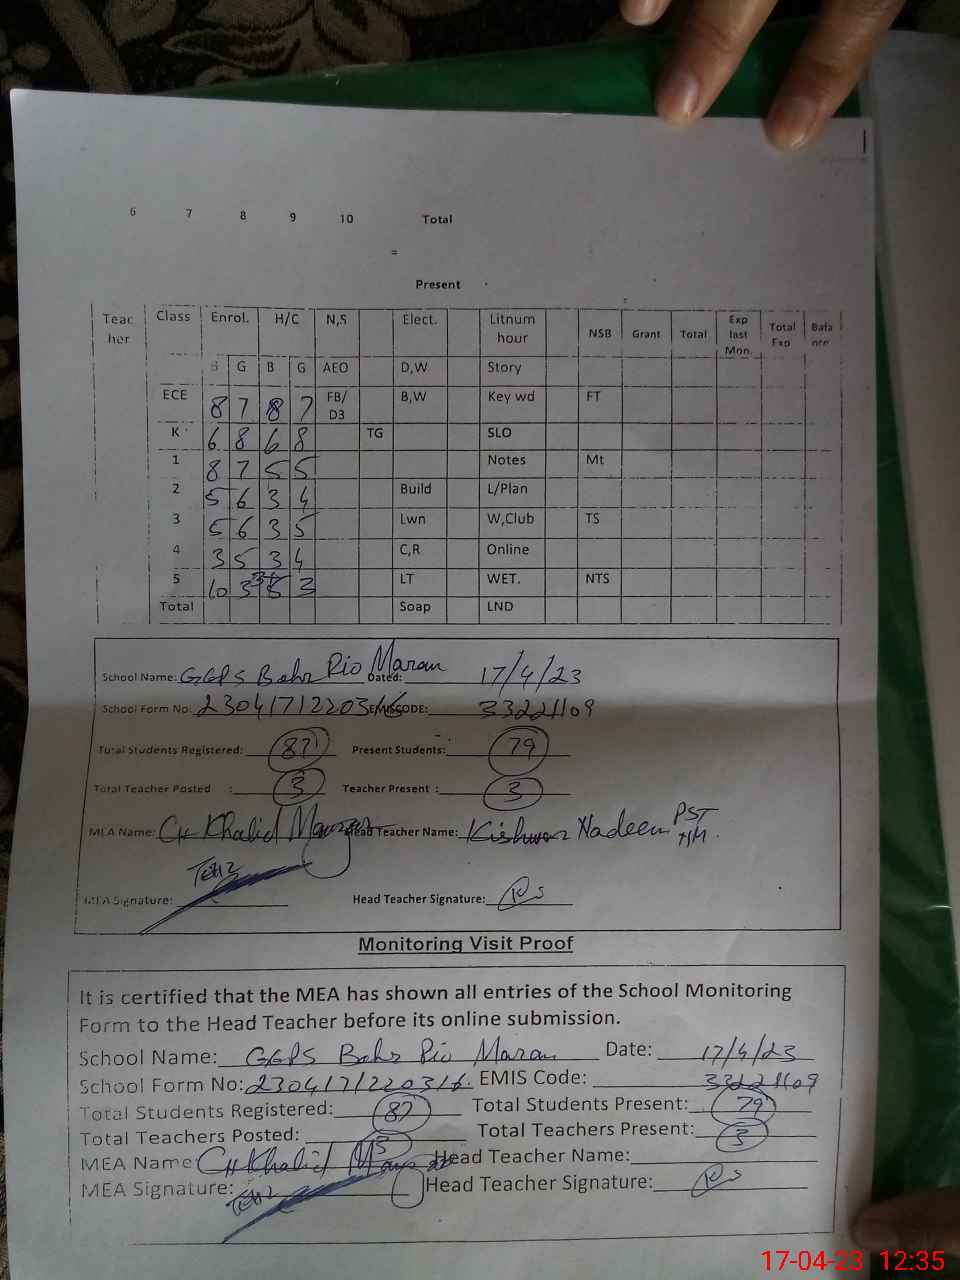 6 7 8 9 10 Total
=
Present
Teac her Class Enrol. H/C N,S Elect. Litnum hour NSB Grant Total Exp last Mon. Total Exp Bala nce
B G B G AEO D,W Story
ECE 8 7 8 7 FB/ D3 B,W Key wd FT
K 6 8 6 8 TG SLO
1 8 7 5 5 Notes Mt
2 5 6 3 4 Build L/Plan
3 5 6 3 5 Lwn W,Club TS
4 3 5 3 4 C,R Online
5 10 3 3 LT WET. NTS
Total Soap LND
School Name: GGPS Bahr Pio Maran Dated: 17/4/23
School Form No: 2304171220316 EMISCODE: 33221109
Total Students Registered: 87 Present Students: 79
Total Teacher Posted : 3 Teacher Present : 3
MEA Name: CH Khalid Head Teacher Name: Kishwar Nadeem PST
MEA Signature: Head Teacher Signature:
Monitoring Visit Proof
It is certified that the MEA has shown all entries of the School Monitoring
Form to the Head Teacher before its online submission.
School Name: GGPS Bahr Pio Maran Date: 17/4/23
School Form No: 2304171220316 EMIS Code: 33221109
Total Students Registered: 87 Total Students Present: 79
Total Teachers Posted: 3 Total Teachers Present: 3
MEA Name: CH Khalid Head Teacher Name:
MEA Signature: Head Teacher Signature:
17-04-23 12:35